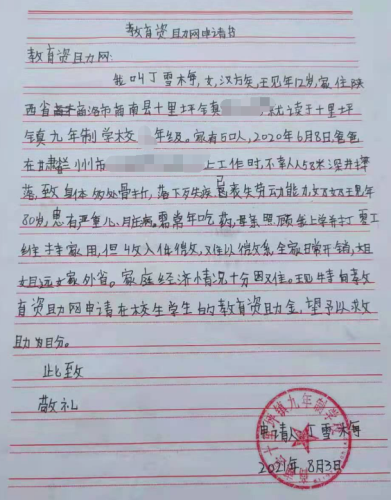 教育资助网申请书
教育资助网:
我叫丁雪梅,女,汉族,现年12岁,家住陕
西省商洛市商南县十里坪镇 就读于十里坪
镇九年制学校 年级。家有5口人,2020年6月8日,爸爸
在甘肃兰州市 上工作时,不幸从58米深井坠
落,致身体多处骨折,落下残疾已丧失劳动能力,奶奶现年
80岁,患有严重 需常年吃药,妈妈照顾 上学并打零工
维持家用,但收入低微,难以缴系全家日常开销,大
姐远嫁外省。家庭经济情况十分困难。现特向教
育资助网申请在校生学生的教育资助金,望予以救
助为盼。
此致
敬礼
申请人:丁雪梅
2021年8月3日
十里坪镇九年制学校